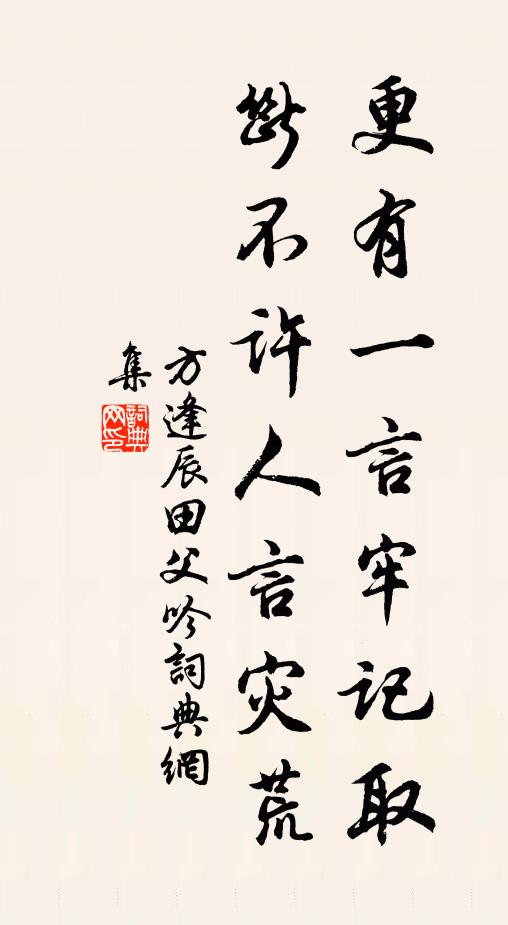 更有一言牢记取
断不许人言灾荒
方逢辰田父吟词典網
集
词典
网印